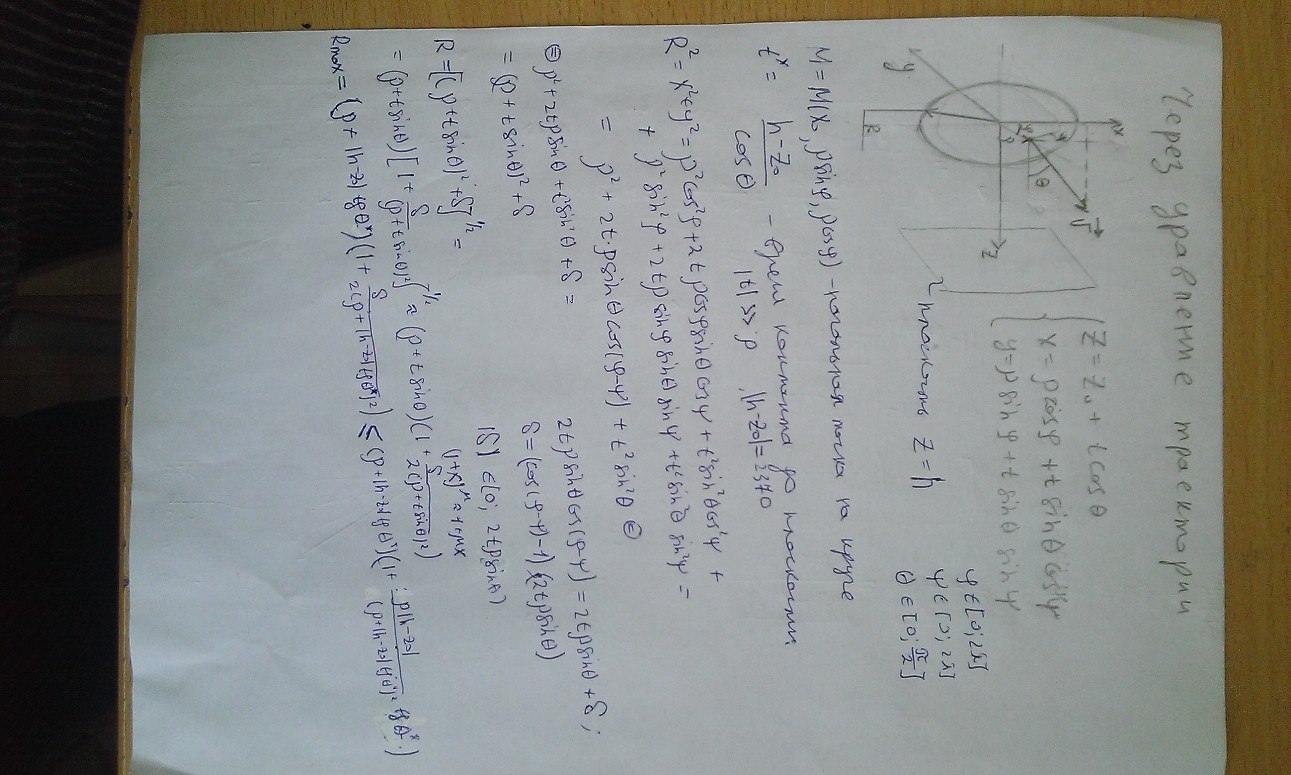 Через уравнение траектории
Z = Z₀ + t cos θ
x = ρ cos φ + t sin θ cos ψ
y = ρ sin φ + t sin θ sin ψ
φ ∈ [0; 2π]
ψ ∈ [0; 2π]
θ ∈ [0; π/2]
y
R
z
θ
плоскость Z = h
M = M(X₀, ρ sin φ, ρ cos φ) - начальная точка на круге
t* = (h - z₀)/cos θ - время контакта до плоскости
|t| >> ρ, |h-z₀| = ≥ ≠ 0
R² = x² + y² = ρ² cos² φ + 2t ρ cos φ sin θ cos ψ + t² sin² θ cos² ψ +
+ ρ² sin² φ + 2tρ sin φ sin θ sin ψ + t² sin² θ sin² ψ =
= ρ² + 2t·ρ sin θ cos(φ-ψ) + t² sin² θ ⊜
⊜ ρ² + 2tρ sin θ + t² sin² θ + δ =
= (ρ + t sin θ)² + δ
2tρ sin θ cos(φ-ψ) = 2tρ sin θ + δ;
δ = (cos(φ-ψ)-1)(2tρ sin θ)
|δ| ∈ [0; 2tρ sin θ)
(1+x)^μ ≈ 1+μx
R = [(ρ + t sin θ)² + δ]^1/2 =
= (ρ + t sin θ)[1 + δ/(ρ + t sin θ)²]^1/2 ≈ (ρ + t sin θ)(1 + δ/2(ρ + t sin θ)²)
Rmax = (ρ + |h-z₀| tg θ*)(1 + δ/2(ρ + |h-z₀| tg θ*)²) ≤ (ρ + |h-z₀| tg θ*)(1 + ρ|h-z₀|/(ρ + |h-z₀| tg θ*)² tg θ*)